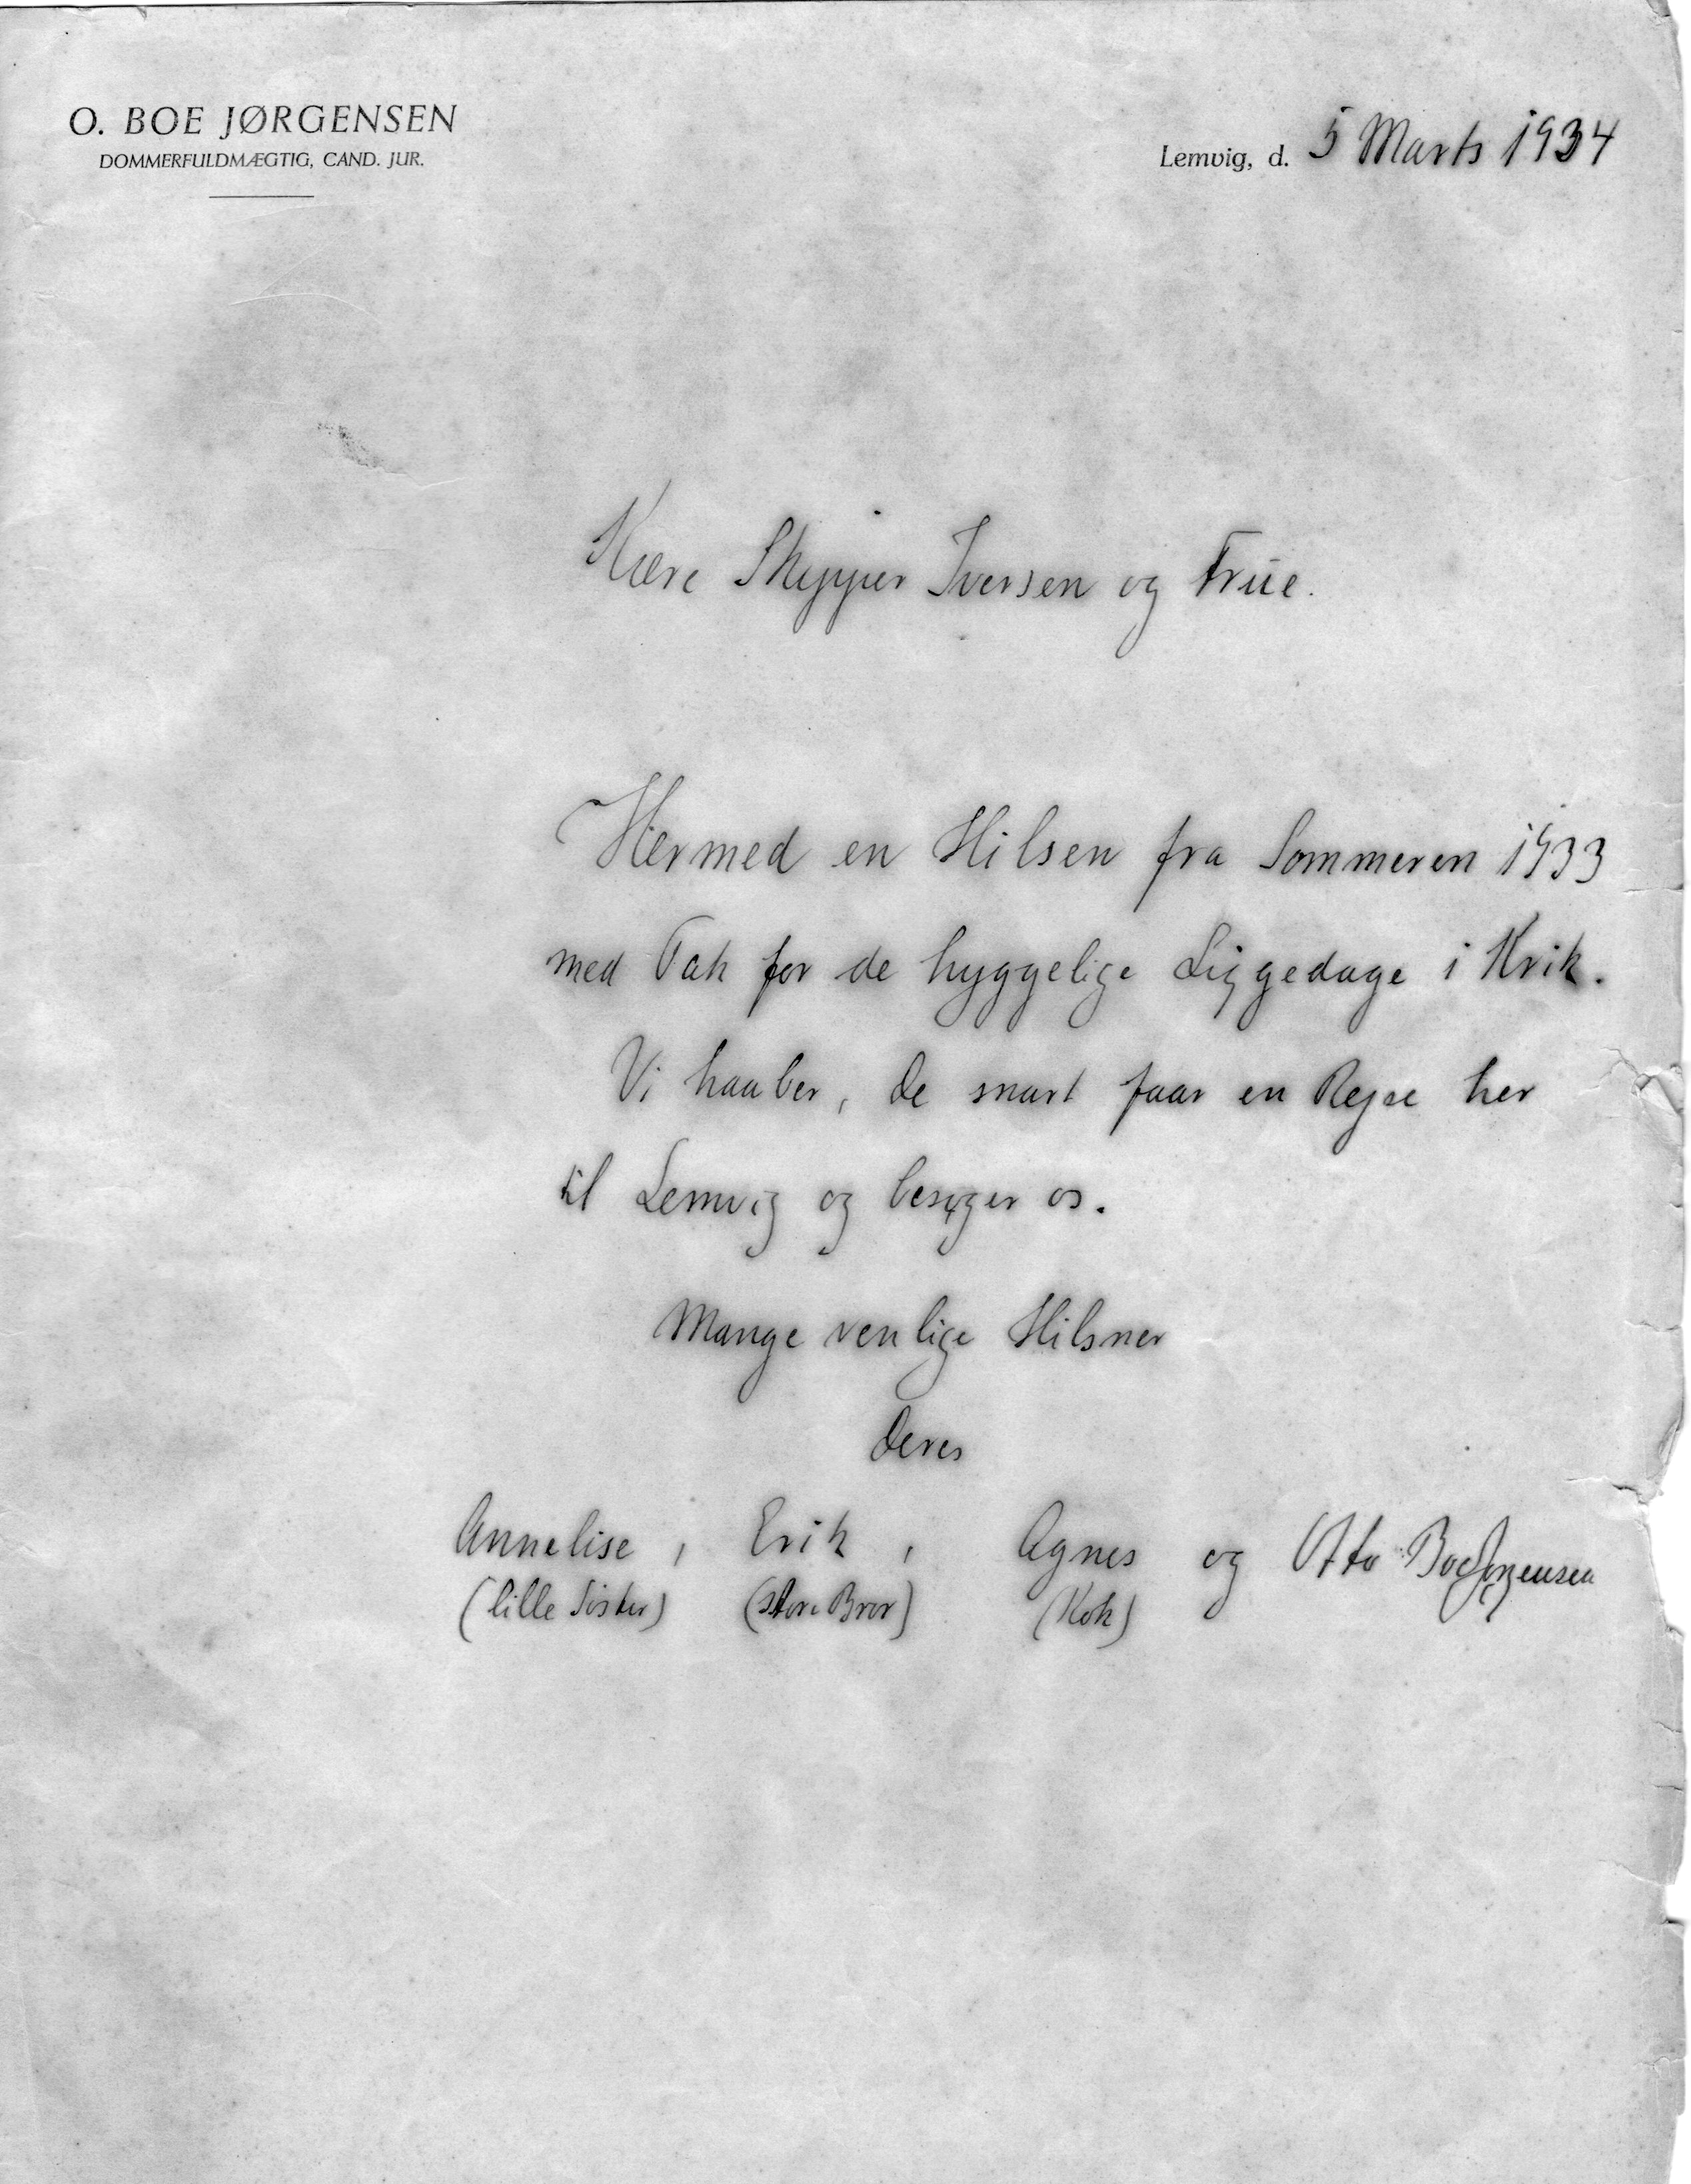 O. BOE JØRGENSEN
DOMMERFULDMÆGTIG, CAND. JUR.
Lemvig, d. 5 Marts 1934
Kære Skipper Iversen og Frue.
Hermed en Hilsen fra Sommeren 1933
med Tak for de hyggelige Liggedage i Krik.
Vi haaber, De snart faar en Rejse her
til Lemvig og besøger os.
Mange venlige Hilsner
Deres
Annelise, Erik, Agnes og Otto Boe Jørgensen
(lille Søster) (Store Bror) (Kok)